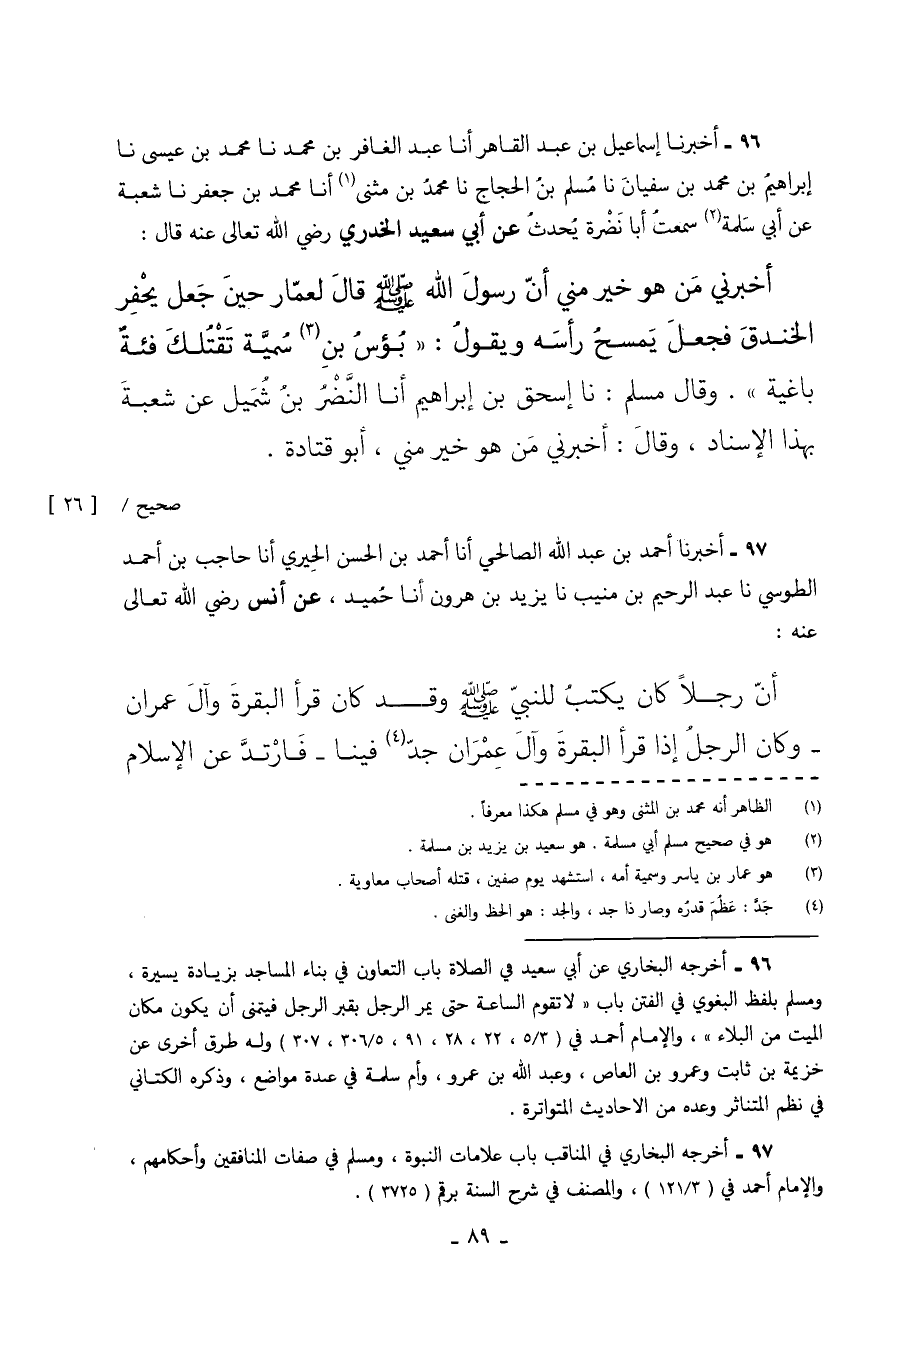 ٩٦ ـ أخبرنـا إسماعيل بن عبـد القـاهر أنـا عبد الغـافر بن محمـد نـا محمـد بن عيسى نـا
إبراهيمُ بن محمد بن سفيانَ نا مُسلم بنُ الحجاج نا محمدُ بن مثنى(١) أنـا محمـد بن جعفر نـا شعبـة
عن أبي سَلمة(٢) سمعتُ أبا نَضْرة يُحدثُ عن أبي سعيد الخدري رضي الله تعالى عنه قال :
أخبرني مَن هو خير مني أنّ رسولَ الله ﷺ قالَ لعمّار حينَ جَعل يحْفِر
الخنـدقَ فجعـلَ يَمسـحُ رأسَـه ويقـولُ : « بُـؤسُ بنِ(٣) سُميَّـة تَقْتُلـكَ فئـةٌ
باغية » . وقال مسلم : نـا إسحق بن إبراهيم أنـا النَّضْرُ بنُ شُمَيل عن شعبـةَ
بهذا الإسناد ، وقالَ : أخبرني مَن هو خير مني ، أبو قتادة .
صحيح / [ ٢٦ ]
٩٧ ـ أخبرنا أحمد بن عبد الله الصالحي أنا أحمد بن الحسن الحِيري أنا حاجب بن أحمـد
الطوسي نا عبد الرحيم بن منيب نا يزيد بن هرون أنـا حُميـد ، عن أنس رضي الله تعـالى
عنه :
أنّ رجـلاً كان يكتبُ للنبيّ ﷺ وقـــد كان قرأ البقرةَ وآلَ عمران
ـ وكان الرجلُ إذا قرأ البقرةَ وآلَ عِمْرَان جدّ(٤) فينـا ـ فَـارْتـدَّ عن الإسلام
(١) الظاهر أنه محمد بن المثنى وهو في مسلم هكذا معرفاً .
(٢) هو في صحيح مسلم أبي مسلمة . هو سعيد بن يزيد بن مسلمة .
(٣) هو عمار بن ياسر وسمية أمه ، استشهد يوم صفين ، قتله أصحاب معاوية .
(٤) جَدَّ : عَظُمَ قدرُه وصار ذا جد ، والجد : هو الحظ والغنى .
٩٦ ـ أخرجه البخاري عن أبي سعيد في الصلاة باب التعاون في بناء المساجد بزيـادة يسيرة ،
ومسلم بلفظ البغوي في الفتن باب « لا تقوم الساعـة حتى يمر الرجل بقبر الرجل فيتمنى أن يكون مكان
الميت من البلاء » ، والإمـام أحمـد في ( ٥/٣ ، ٢٢ ، ٢٨ ، ٩١ ، ٣٠٦/٥ ، ٣٠٧ ) ولـه طرق أخرى عن
خزيمة بن ثابت وعمرو بن العاص ، وعبد الله بن عمرو ، وأم سلمـة في عـدة مواضع ، وذكره الكتـاني
في نظم المتناثر وعده من الاحاديث المتواترة .
٩٧ ـ أخرجه البخاري في المناقب باب علامات النبوة ، ومسلم في صفات المنافقين وأحكامهم ،
والإمام أحمد في ( ١٢١/٣ ) ، والمصنف في شرح السنة برقم ( ٣٧٢٥ ) .
ـ ٨٩ ـ